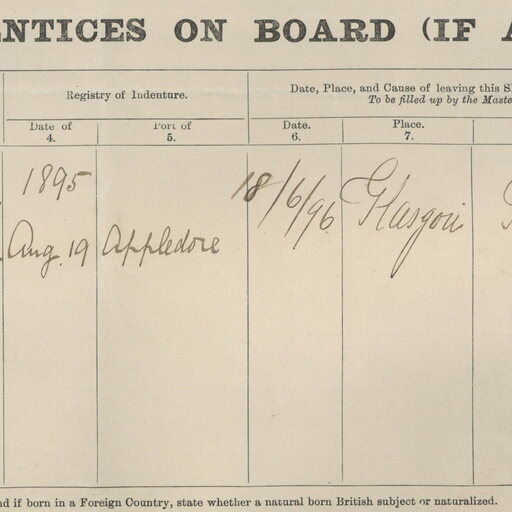 ENTICES ON BOARD (IF A
Registry of Indenture.
Date, Place, and Cause of leaving this S
To be filled up by the Maste
Date of
4.
Port of
5.
Date.
6.
Place.
7.
1895
Aug. 19
Appledore
18/6/96
Glasgow
nd if born in a Foreign Country, state whether a natural born British subject or naturalized.